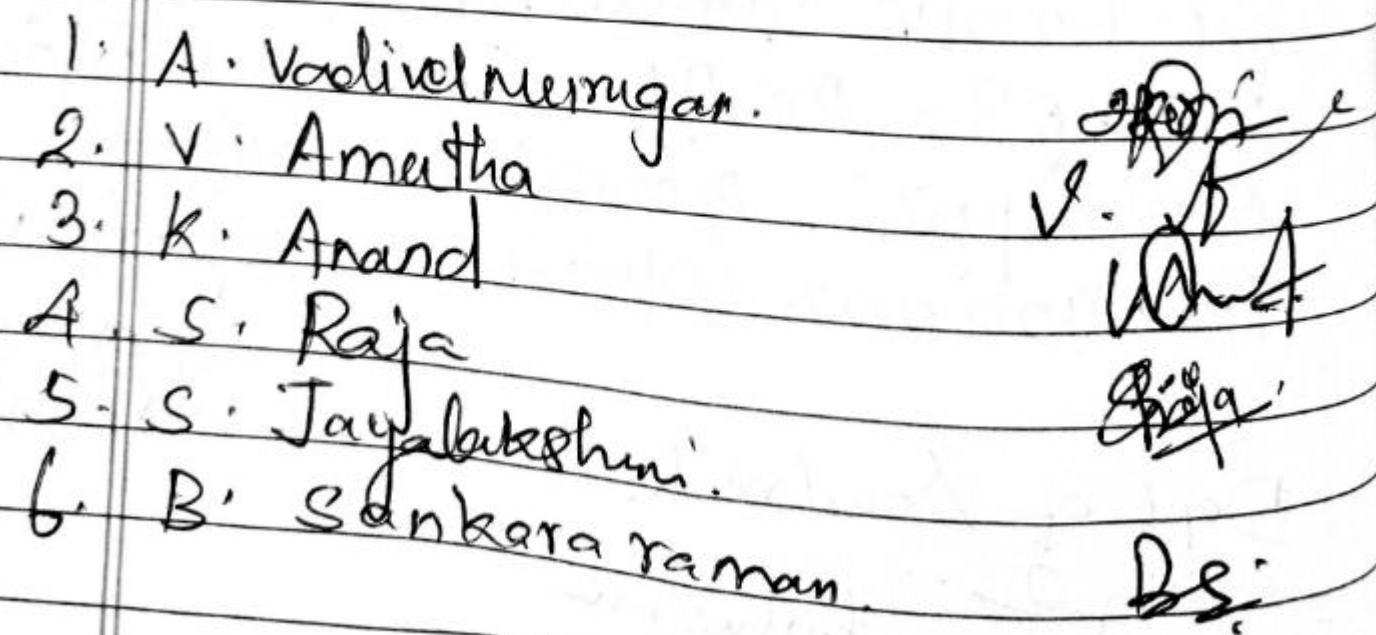 1. A. Vadivelmurugan.
2. V. Amutha
3. K. Anand
4. S. Raja
5. S. Jayalakshmi.
6. B. Sankara raman.